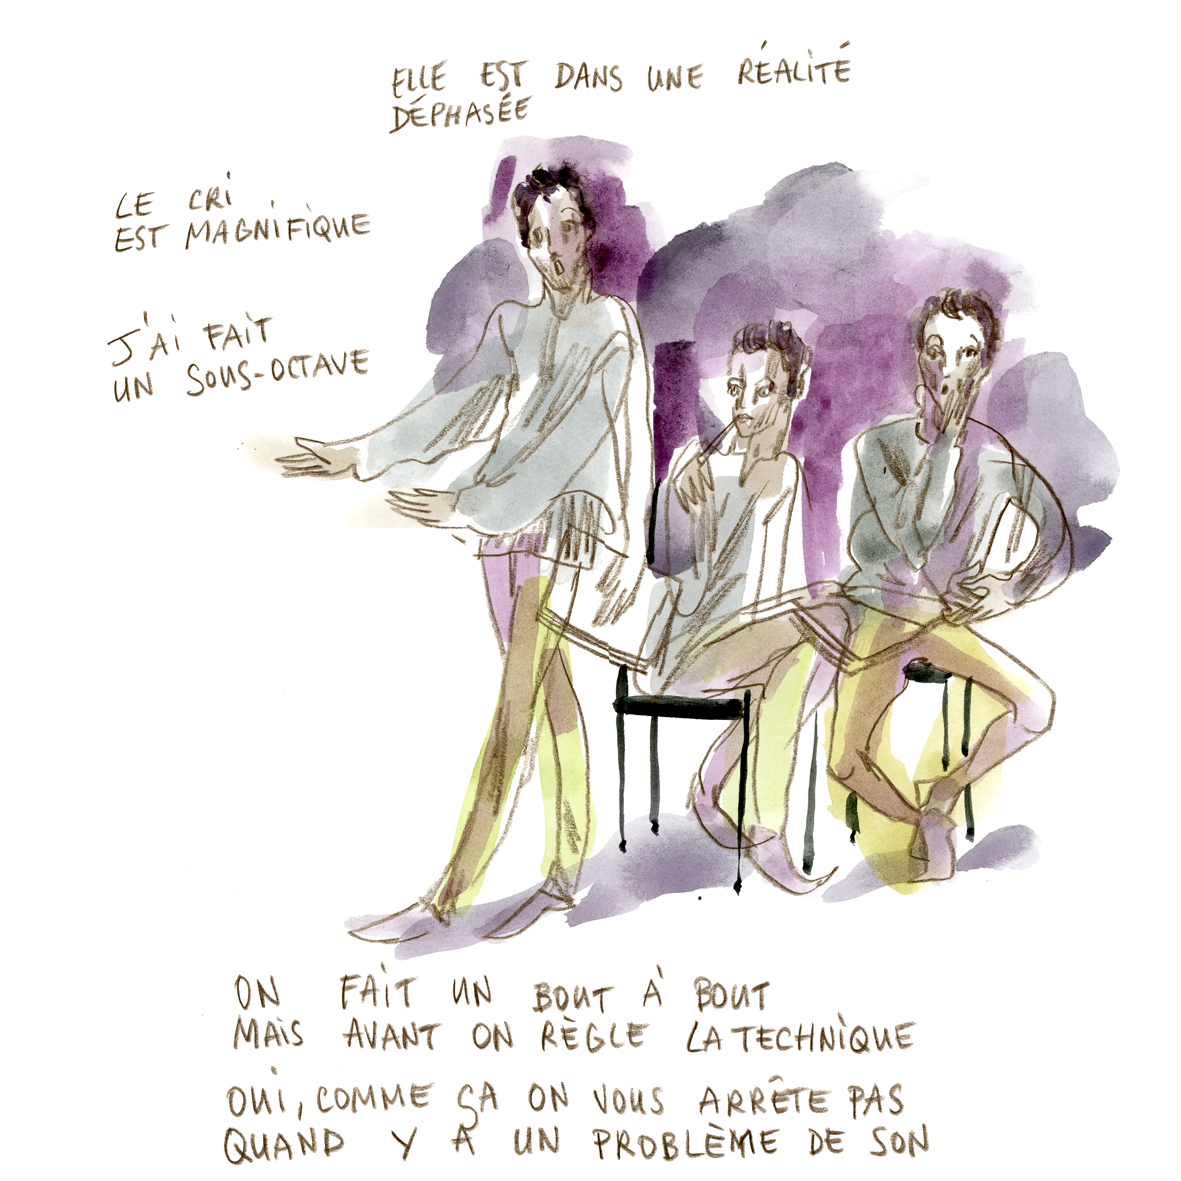 ELLE EST DANS UNE RÉALITÉ
DÉPHASÉE
LE CRI
EST MAGNIFIQUE
J'AI FAIT
UN SOUS-OCTAVE
ON FAIT UN BOUT À BOUT
MAIS AVANT ON RÈGLE LA TECHNIQUE
OUI, COMME ÇA ON VOUS ARRÊTE PAS
QUAND Y A UN PROBLÈME DE SON